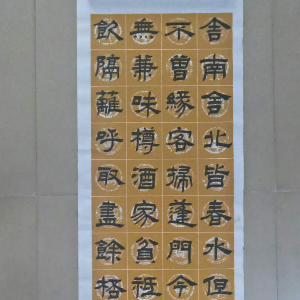 舍南舍北皆春水但
不曾緣客掃蓬門今
無兼味樽酒家貧祗
飲隔蘺呼取盡餘桮